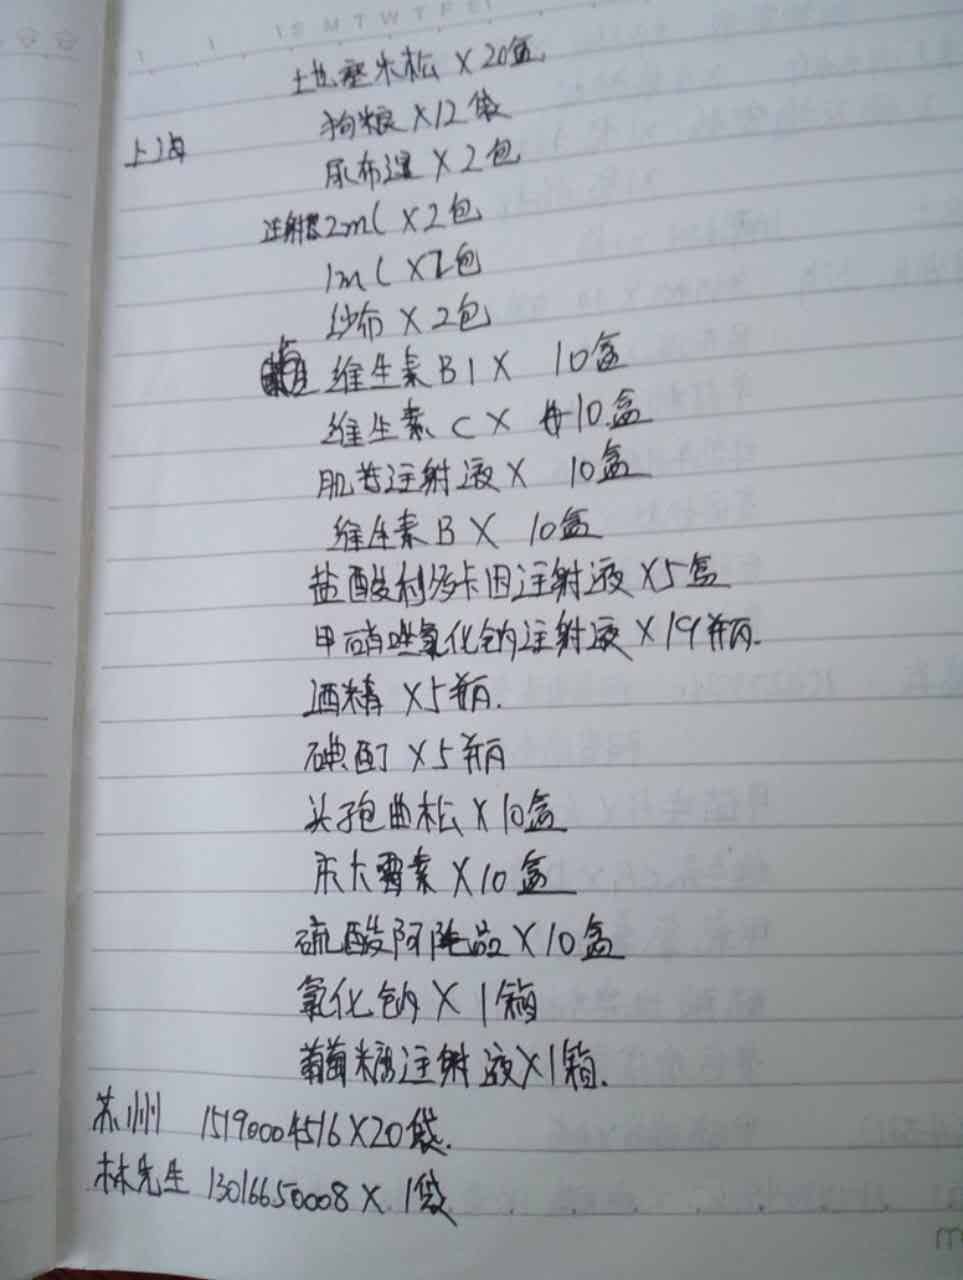 S M T W T F S
土也塞米松 × 20盒
狗粮 ×12袋
上海
尿布湿 × 2包
注射器2ml ×2包
1ml ×2包
纱布 ×2包
维生素B1× 10盒
维生素C× 10盒
肌苷注射液× 10盒
维生素B× 10盒
盐酸利多卡因注射液×5盒
甲硝唑氯化钠注射液×19瓶.
酒精 ×5瓶.
碘酊 ×5瓶
头孢曲松×10盒
庆大霉素×10盒
硫酸阿托品×10盒
氯化钠 × 1箱
葡萄糖注射液×1箱.
苏州 15190004516×20袋.
林先生 13016650008× 1袋